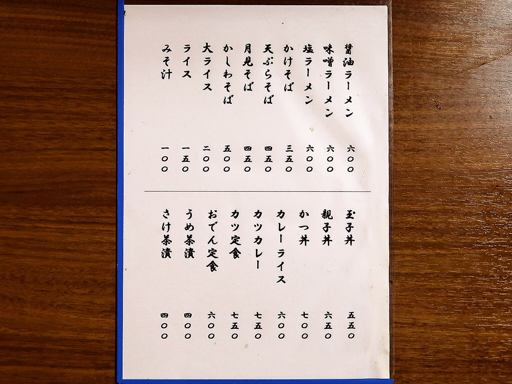 醤油ラーメン 六〇〇
味噌ラーメン 六〇〇
塩ラーメン 六〇〇
かけそば 三五〇
天ぷらそば 四五〇
月見そば 四五〇
かしわそば 五〇〇
大ライス 二〇〇
ライス 一五〇
みそ汁 一〇〇
玉子丼 五五〇
親子丼 六五〇
かつ丼 七〇〇
カレーライス 六〇〇
カツカレー 七五〇
カツ定食 七五〇
おでん定食 六〇〇
うめ茶漬 四〇〇
さけ茶漬 四〇〇